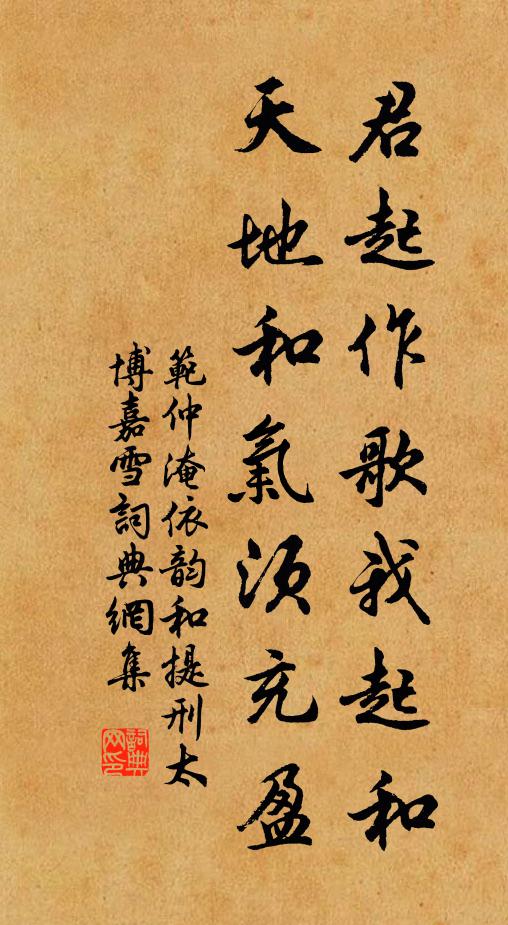 君起作歌我起和
天地和氣須充盈
範仲淹依韵和提刑太
博嘉雪詞典網集
詞典網印